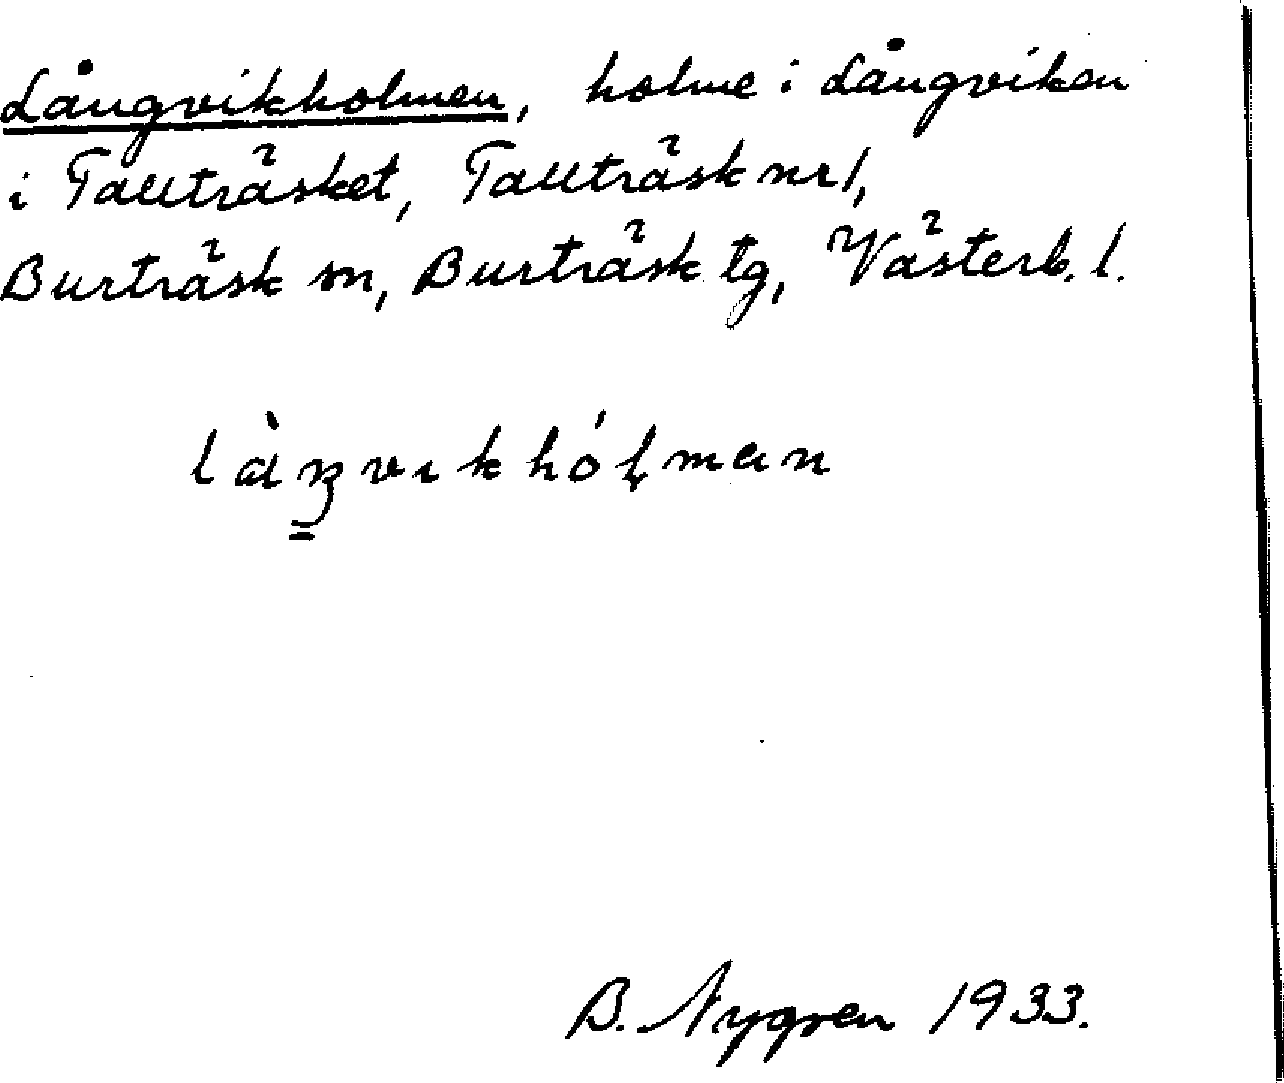 Långvikholmen, holme i Långviken
i Tallträsket, Tallträsk nr 1,
Burträsk sn, Burträsk tg, Västerb. l.
làŋvıkhóḷmɐn
B. Nygren 1933.